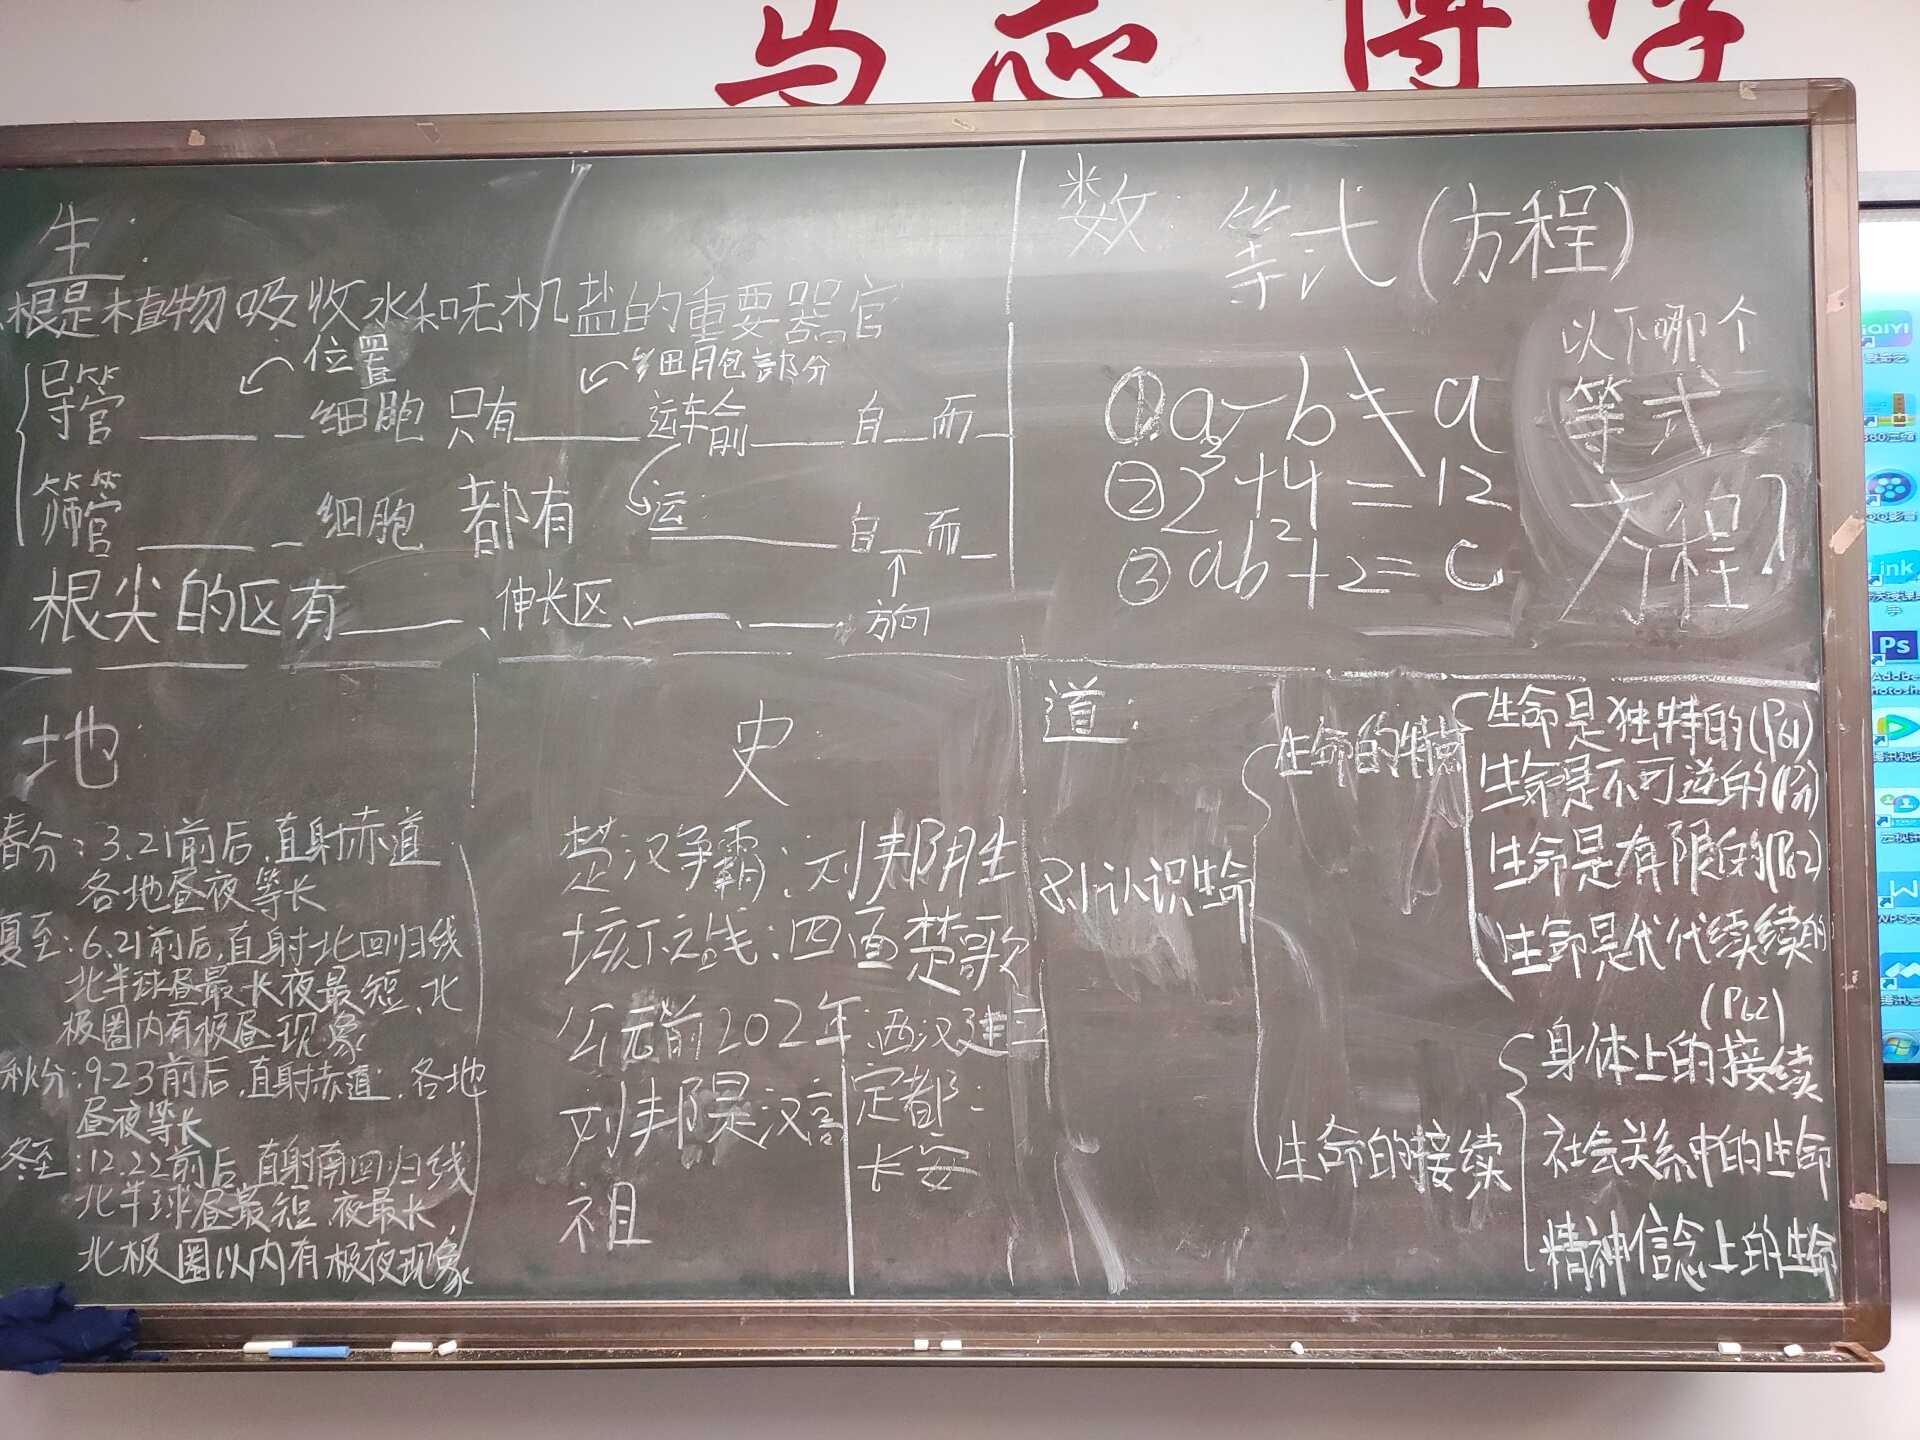 博学
生:
根是植物吸收水和无机盐的重要器官
位置
细胞部分
导管 ____ _ 细胞 只有____运输____自__而_
筛管 ____ _ 细胞 都有 运:______自__而_
根尖的区有____、伸长区、____、____
方向
数: 等式(方程)
以下哪个
等式
方程?
①a-b≠a
②2³+4=12
③ab²+2=c
地:
春分:3.21前后,直射赤道
各地昼夜等长
夏至:6.21前后,直射北回归线
北半球昼最长夜最短、北
极圈内有极昼现象
秋分:9.23前后,直射赤道,各地
昼夜等长
冬至:12.22前后,直射南回归线
北半球昼最短,夜最长,
北极圈以内有极夜现象
史
楚汉争霸:刘邦胜
垓下之战:四面楚歌
公元前202年 西汉建立
刘邦是汉高
祖
定都:
长安
道:
认识生命
生命的特点
生命是独特的(P61)
生命是不可逆的(P61)
生命是有限的(P62)
生命是代代续续的
(P62)
生命的接续
身体上的接续
社会关系中的生命
精神信念上的生命
iQIYI
Link
Ps
Adobe